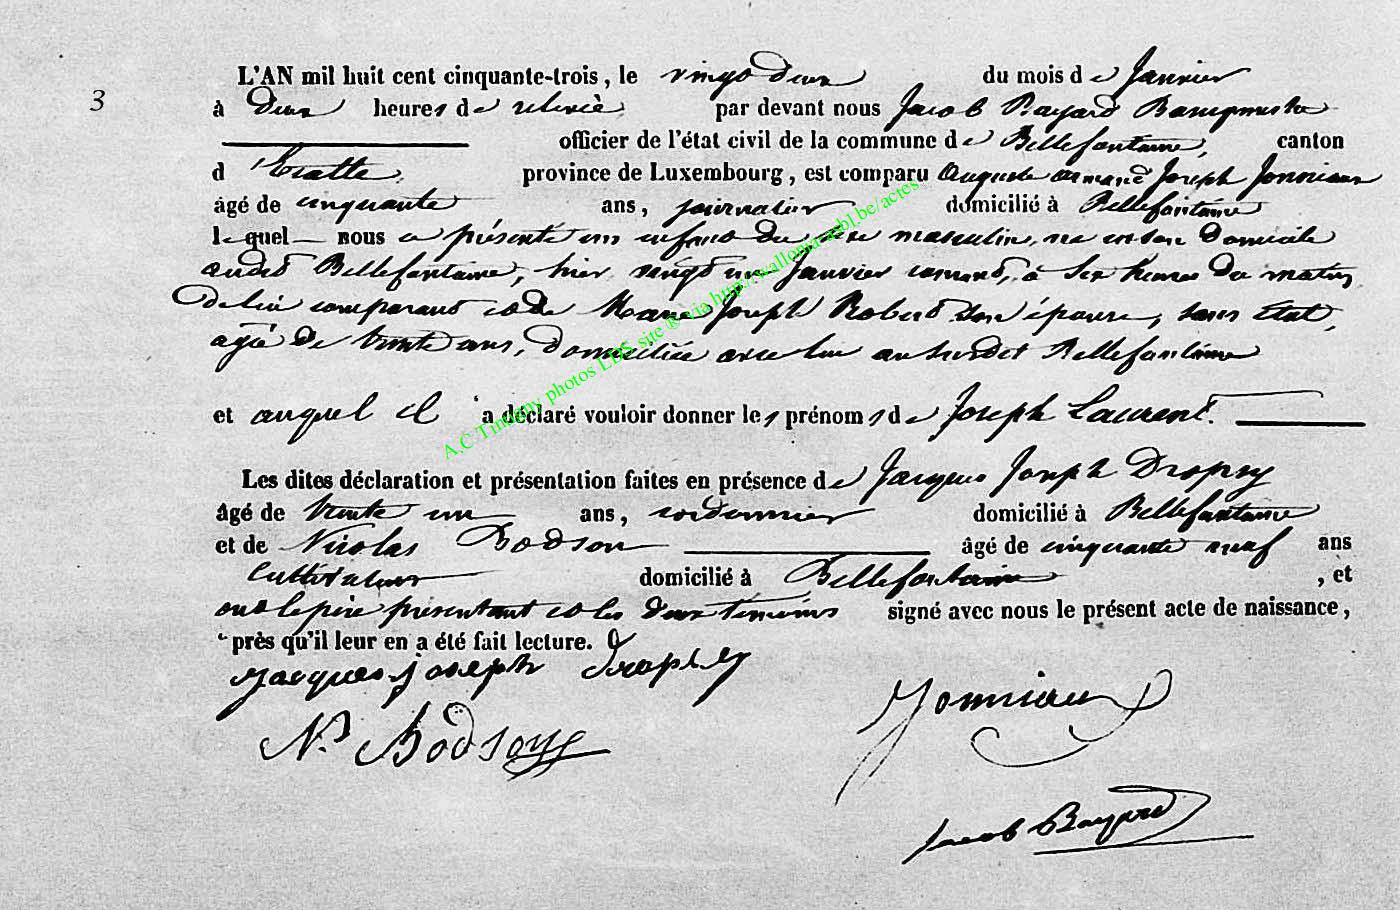 3
L'AN mil huit cent cinquante-trois, le vingt deux du mois de Janvier
à deux heures de relevée par devant nous Jacob Bayard Bourgmestre
officier de l'état civil de la commune de Bellefontaine, canton
d'Etalle, province de Luxembourg, est comparu Auguste armand Joseph Jonniaux
âgé de cinquante ans, journalier domicilié à Bellefontaine
lequel nous a présenté un enfant du sexe masculin, né en son domicile
audit Bellefontaine, hier vingt un Janvier courant, à six heures du matin
de lui comparant et de Marie Joseph Robert son épouse, sans état,
agée de trente ans, domiciliée avec lui au susdit Bellefontaine
et auquel il a déclaré vouloir donner les prénoms de Joseph Laurent.
Les dites déclaration et présentation faites en présence de Jacques Joseph Dropsy
âgé de trente un ans, cordonnier domicilié à Bellefontaine
et de Nicolas Bodson âgé de cinquante neuf ans
Cultivateur domicilié à Bellefontaine, et
ont le père présentant et les deux témoins signé avec nous le présent acte de naissance,
près qu'il leur en a été fait lecture.
Jacques joseph Dropsy
Jonniaux
N. Bodson
Jacob Bayard
A.C Tintigny photos LDS site ® via http://wallonia-asbl.be/actes